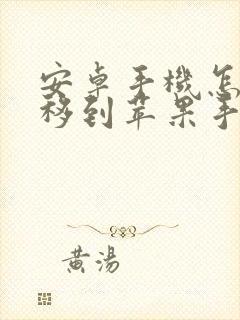 安卓手機怎
移到苹果手
黄湯